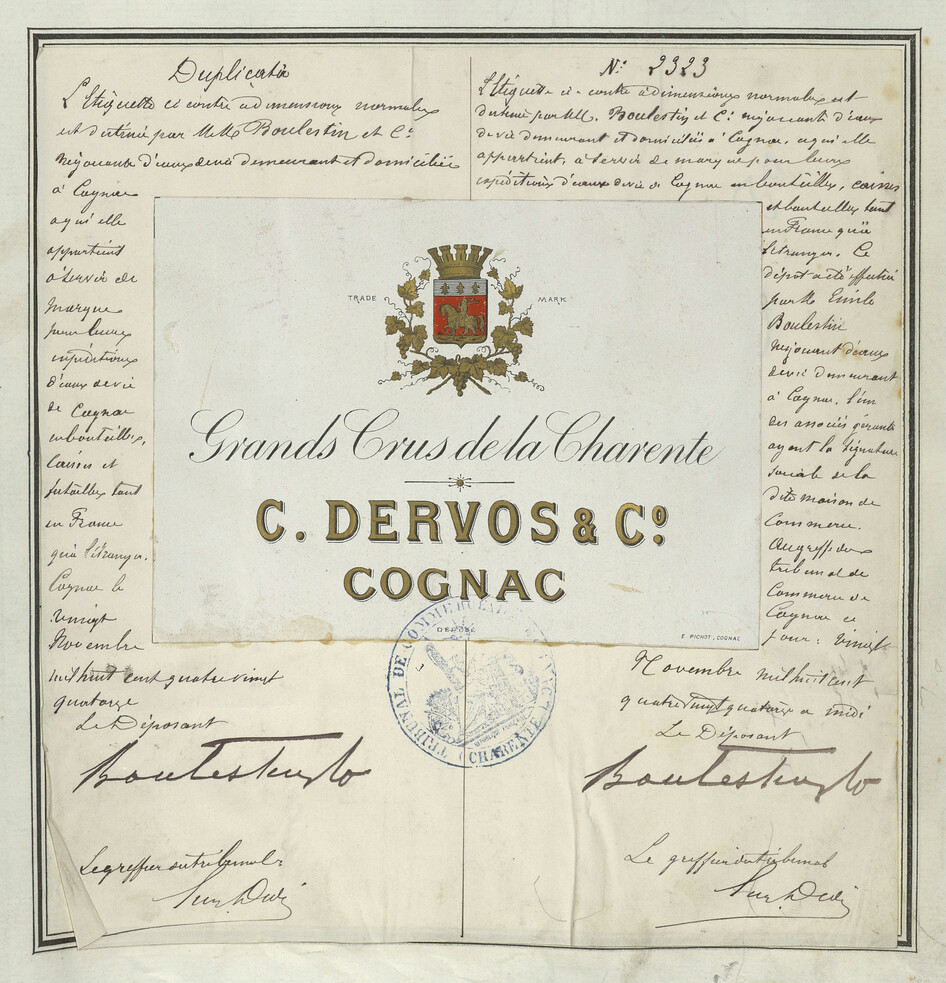 Duplicata
L'Etiquette ci contre à dimensions normales
est détenue par MM Boulestin et Cie
négociants d'eaux de vie demeurant et domiciliés
à Cognac
à qui elle
appartient
à servir de
marque
pour leurs
expéditions
d'eaux de vie
de Cognac
en bouteilles,
caisses et
futailles tant
en France
qu'à l'étranger.
Cognac le
vingt
Novembre
mil huit cent quatre vingt
quatorze
Le Déposant
Boulestin & Co
Le greffier du tribunal
No: 2323
L'Etiquette ci-contre à dimensions normales est
détenue par MM. Boulestin et Cie négociants d'eaux
de vie demeurant et domiciliés à Cognac, à qui elle
appartient, à servir de marque pour leurs
expéditions d'eaux de vie de Cognac en bouteilles, caisses
et bouteilles tant
en France qu'à
l'étranger. Le
dépôt a été effectué
par M Emile
Boulestin
négociant d'eaux
de vie demeurant
à Cognac, l'un
des associés gérants
ayant la signature
sociale de la
dite maison de
Commerce.
Au greffe du
tribunal de
Commerce de
Cognac ce
jour: vingt
Novembre mil huit cent
quatre vingt quatorze à midi
Le Déposant
Boulestin & Co
Le greffier du tribunal
TRADE MARK
Grands Crus de la Charente
C. DERVOS & Co.
COGNAC
DÉPOSÉ
E. PICHOT, COGNAC
TRIBUNAL DE COMMERCE
CHARENTE